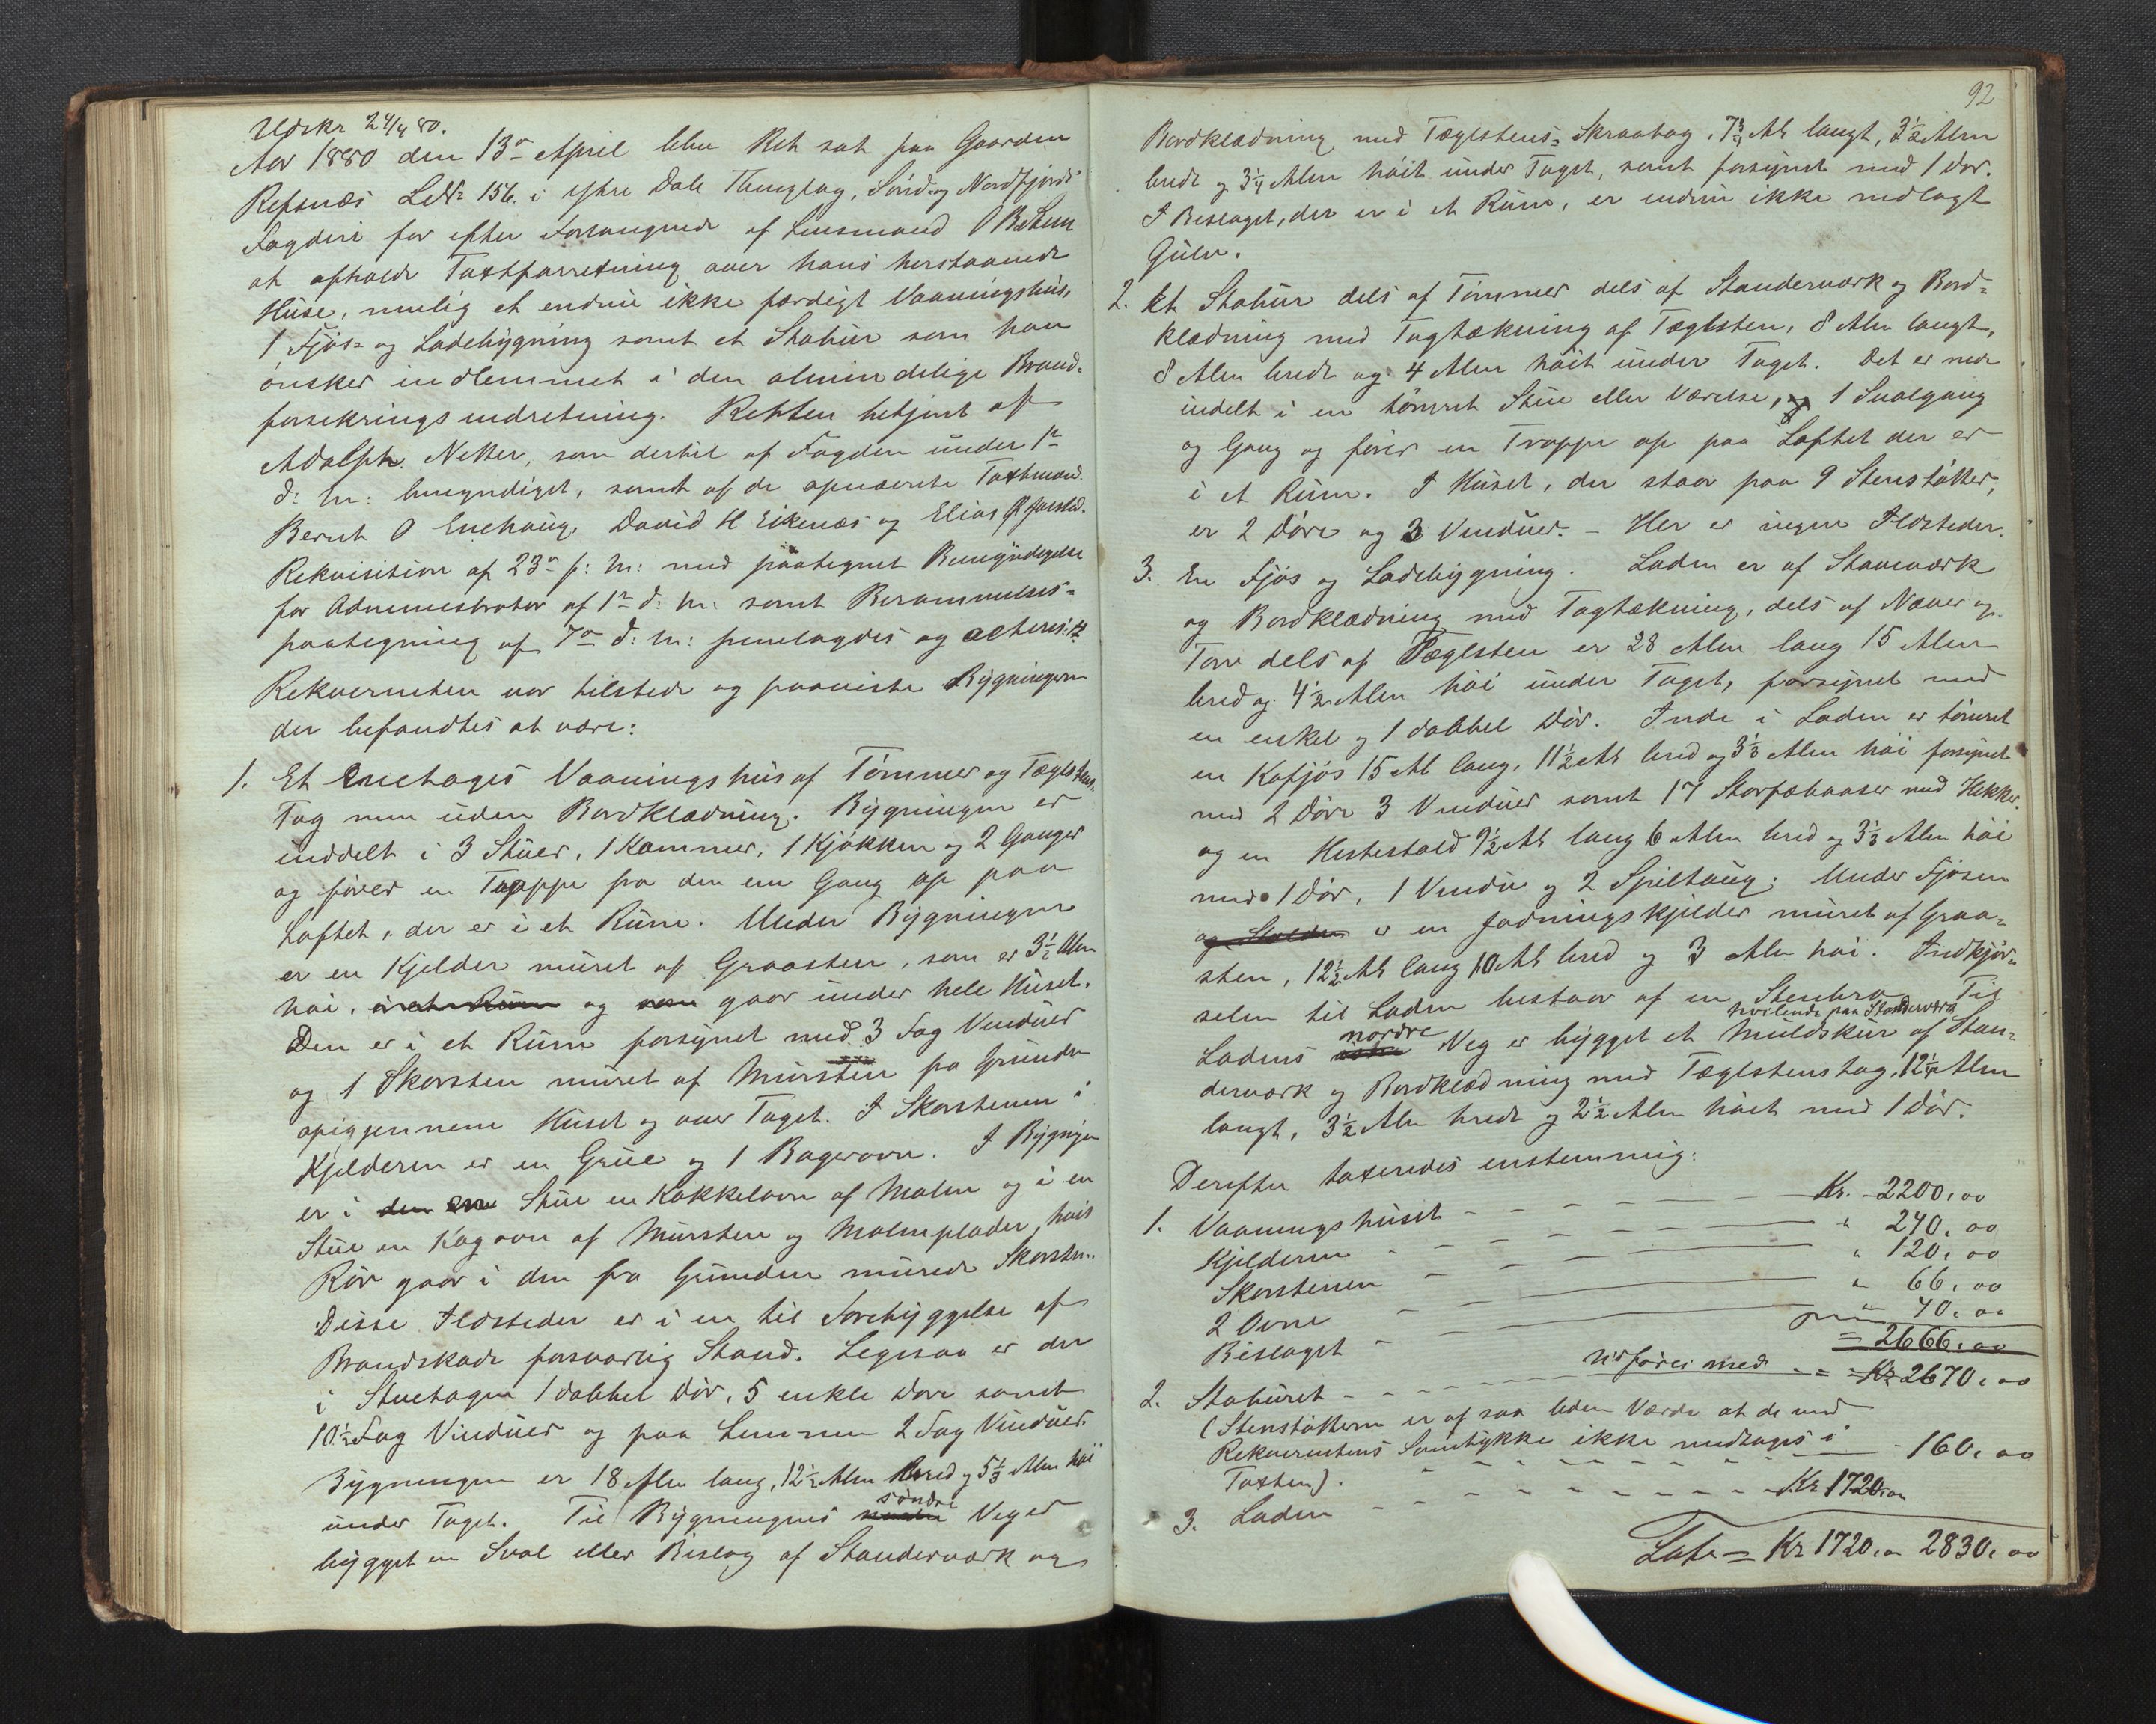 Udskr 24/4 80.
Aar 1880 den 13de April blev Ret sat paa Gaarden
Refsnæs LNr 156. i Ytre Dale Thinglag, Sönd og Nordfjords
Fogderi for efter Forlangende af Lensmand
at afholde Taxtforretning over hans herstaaende
Huse, nemlig et endnu ikke færdigt Vaaningshus,
1 Fjös- og Ladebygning samt et Stabur som han
önsker indlemmet i den almindelige Brand-
forsikringsindretning. Retten betjent af
Adolph Netter, som dertil af Fogden under 1ste
d: m: bemyndiget, samt af de opnævnte Taxtmænd
Bernt O Enehaug, David H Eikenæs og Elias
Rekvisition af 23de f: m: med paategnet Bemyndigelse
for Administrator af 1ste d: m: samt Berammelses-
paategning af 7de d: m: fremlagdes og acteres:
Rekvirenten var tilstede og paaviste Bygningerne
der befandtes at være:
1. Et Enetages Vaaningshus af Tömmer og Tæglstens-
Tag men uden Bordklædning. Bygningen er
inddelt i 3 Stuer, 1 Kammer, 1 Kjökken og 2 Ganger
og förer en Trappe fra den ene Gang op paa
Loftet, der er i et Rum. Under Bygningen
er en Kjelder muret af Graasten, som er 3½ Alen
höi, i et Rum og som gaar under hele Huset.
Den er i et Rum forsynet med 3 Fag Vinduer
og 1 Skorsten muret af Mursten fra Grunden
opigjennem Huset og over Taget. I Skorstenen i
Kjelderen er en Grue og 1 Bagerovn. I Bygnigen
er i den ene Stue en Kakkelovn af Malm og i en
Stue en Kogovn af Mursten og Malmplader, hvis
Rör gaar i den fra Grunden murede Skorsten.
Disse Ildsteder er i en til Forebyggelse af
Brandskade forsvarlig Stand. Legesaa er der
i Stuetagen 1 dobbel Dör, 5 enkle Döre samt
10½ Fag Vinduer og paa Lemmen 2 Fag Vinduer.
Bygningen er 18 Alen lang, 12½ Alen bred og 5⅓ Alen höi
söndre
under Taget. Til Bygningens Veg er
bygget en Sval eller Bislag af Standerværk og
92
Bordklædning med Tæglstens- Skraatag, 7¾ Al langt, 3½ Alen
bredt og 3¼ Alen höit under Taget, samt forsynet med 1 Dör.
I Beslaget, der er i et Rum, er endnu ikke nedlagt
Gulv.
2. Et Stabur dels af Tömmer dels af Standerværk og Bord-
klædning med Tagtækning af Tæglsten, 8 Alen langt,
8 Alen bredt og 4 Alen höit under Taget. Det er nede
indelt i en tömret Stue eller Værelse, 1 Svalgang
og Gang og förer en Trappe op paa Loftet der er
i et Rum. I Huset, der staar paa 9 Stenstötter,
er 2 Döre og 3 Vinduer. - Her er ingen Ildsteder.
3. En Fjös og Ladebygning. Laden er af Stavværk
og Bordklædning med Tagtækning, dels af Næver og
Torv dels af Tæglsten er 28 Alen lang 15 Alen
bred og 4½ Alen höi under Taget, forsynet med
en enkel og 1 dobbel Dör. Inde i Laden er tömret
en Kofjös 15 Al lang, 11½ Al bred og 3⅓ Alen höi forsynet
med 2 Döre 3 Vinduer samt 17 Storfæbaaser med Hekker.
og en Hestestald 9½ Al lang 6 Alen bred og 3⅓ Alen höi
med 1 Dör, 1 Vindu og 2 Spiltaug. Under Fjösen
og Stalden er en Fodringskjelder muret af Graa-
sten, 12½ Al lang 10 Al bred og 3 Alen höi. Indkjör-
selen til Laden bestaar af en Stenbro. Til
nordre hvilende paa Standerværk
Ladens Veg er bygget et Muldskur af Stan-
derværk og Bordklædning med Tæglstenstag, 12¼ Alen
langt, 3½ Alen bredt og 2½ Alen höit med 1 Dör.
Derefter taxeredes enstemmig:
1. Vaaningshuset - - - - - Kr. 2200,00
Kjelderen - - - " 240,00
Skorstenen - - " 120,00
2 Ovne - " 66,00
Bislaget - " 40,00
= 2666,00
udföres med - - = Kr 2670,00
2. Staburet - - - - -
(Stenstötterne er af saa liden Værdi at de med
Rekvirentens Samtykke ikke medtages i
Taxten). - - - - - - 160,00
3. Laden - - - - - - - Kr 1720,00
Late = Kr 1720,00 2830,00